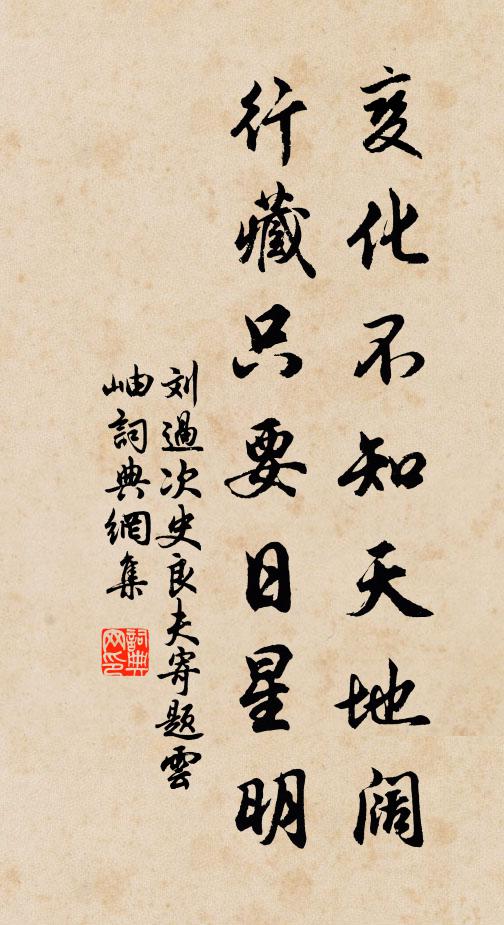 变化不知天地阔
行藏只要日星明
刘過次史良夫寄題雲
岫詞典網集
詞典网印